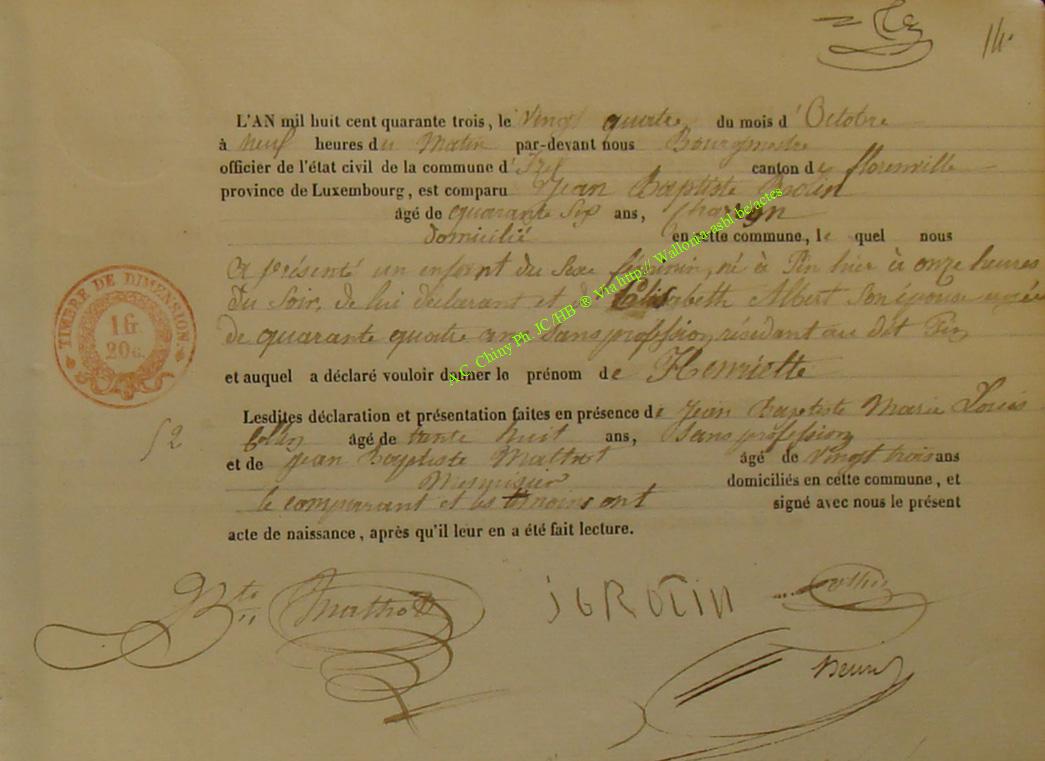 14.
L'AN mil huit cent quarante trois, le Vingt quatre du mois d'Octobre
à neuf heures du Matin par-devant nous Bourgmestre
officier de l'état civil de la commune d'Izel canton de florenville
province de Luxembourg, est comparu Jean Baptiste Rotin
âgé de quarante Six ans,
domicilié en cette commune, le quel nous
a présenté un enfant du Sexe féminin, né à Pin hier à onze heures
du Soir, de lui déclarant et de Elisabeth Albert Son épouse agée
de quarante quatre ans Sans profession, résidant au dit Pin
et auquel a déclaré vouloir donner le prénom de Henriette
Lesdites déclaration et présentation faites en présence de Jean Baptiste Marie Louis
Collin âgé de trente huit ans, Sans profession
et de Jean Baptiste Mathot âgé de Vingt trois ans
Menuisier domiciliés en cette commune, et
le comparant et les témoins ont signé avec nous le présent
acte de naissance, après qu'il leur en a été fait lecture.
52
TIMBRE DE DIMENSION.
1 fr.
20 c.
A.C. Chiny Ph. JC /HB ® Via http:// Wallonia-asbl.be/actes
JBROTIN